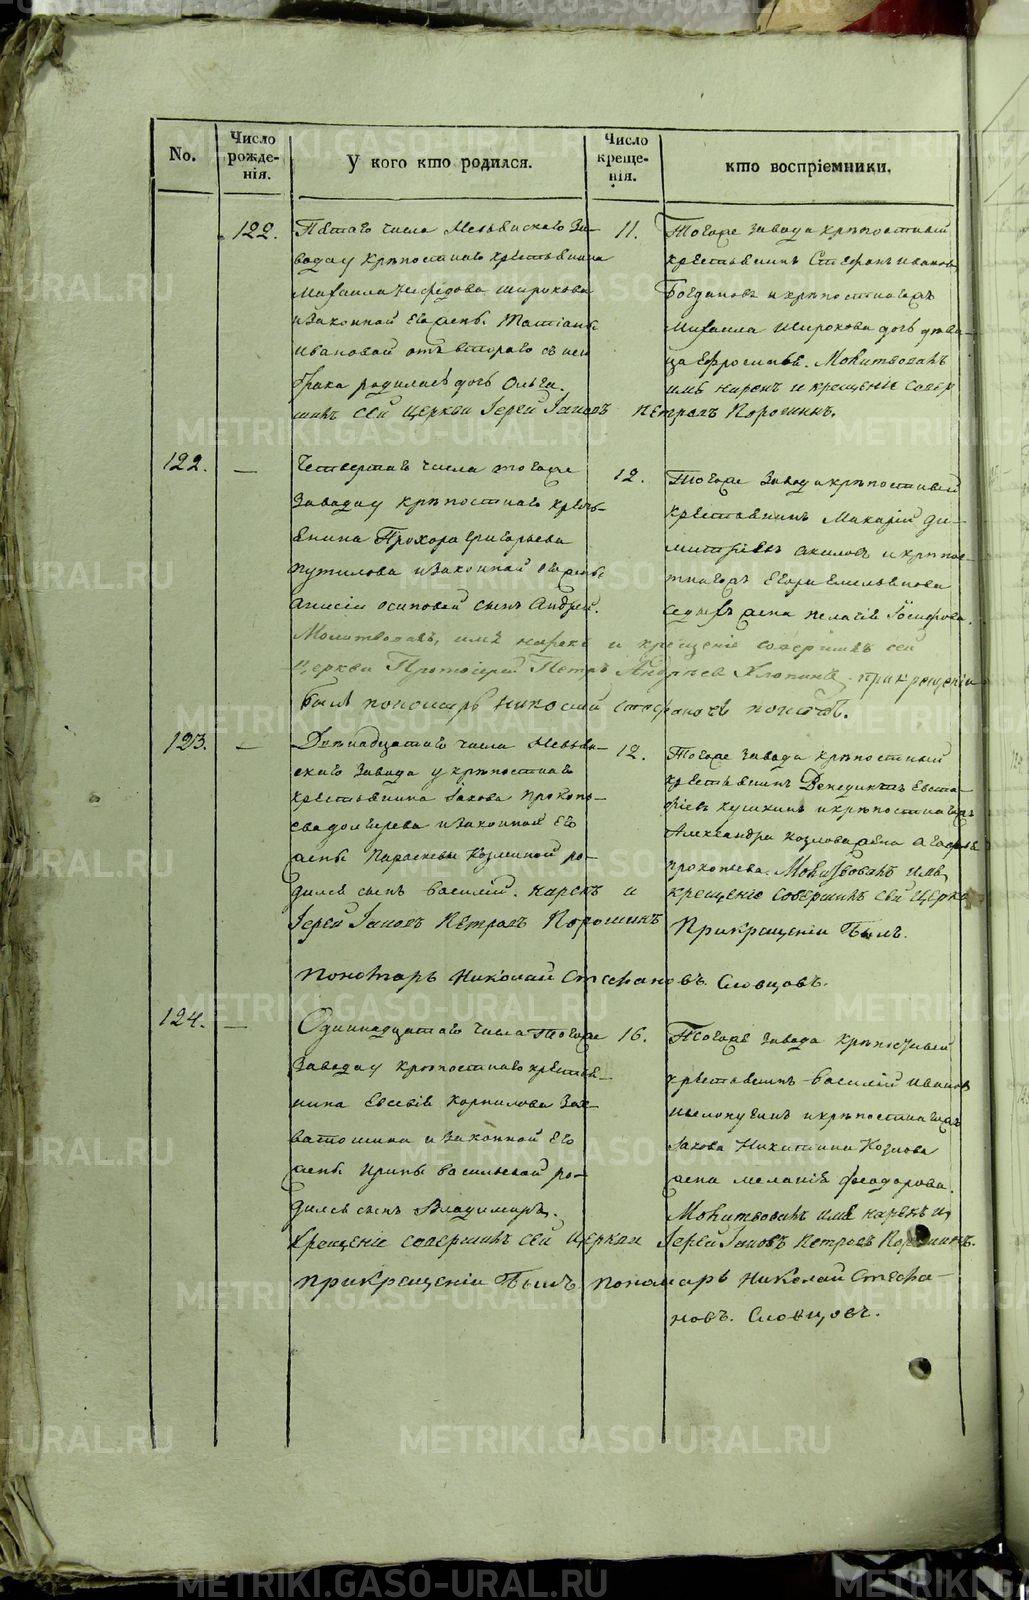 No.
Число рожде- нія.
У кого кто родился.
Число креще- нія.
кто воспріемники.
122.
Пятаго числа Невьянскаго За-
вода у крѣпостнаго крестьянина
Михаила Широкова
и законной его жены Татіаны
Ивановой отъ втораго съ нею
брака родилась дочь Ольга.
11.
Тогоже завода крѣпостный
крестьянинъ Стефанъ Ивановъ
Богдановъ и крѣпостнагожъ
Михаила Широкова дочь дѣви-
ца Ефросинья. Молитвовалъ
имя нарекъ и крещеніе совер
шилъ сей церкви Іерей Іаковъ Петровъ Порошинъ.
122.
—
Четвертаго числа тогоже
завода у крѣпостнаго кресть-
янина Прохора Григорьева
Путилова и законной его жены
Анисіи Осиповой сынъ Андрей.
12.
Тогоже завода крѣпостный
крестьянинъ Макарій Ди-
митріевъ Акиловъ и крѣпос-
тнагожъ Егора Емельянова
жена Пелагія Іосифова.
Молитвовалъ, имя нарекъ и крещеніе совершилъ сей
церкви Протоіерей Петръ Андреевъ Хлопинъ. при крещеніи
былъ пономарь Николай Стефановъ
123.
—
Двѣнадцатаго числа Невьян-
скаго завода у крѣпостнаго
крестьянина Іакова Прокопь-
ева и законной его
жены Параскевы Козминой ро-
дился сынъ Василій. нарекъ и
12.
Тогоже завода крѣпостный
крестьянинъ Венедиктъ Евста-
фіевъ и крѣпостнагожъ
Александра Козлова жена Агафья
Прокопьева. Молитвовалъ имя,
крещеніе совершилъ сей церкви
Іерей Іаковъ Петровъ Порошинъ
При крещеніи былъ
пономарь Николай Стефановъ. Словцовъ.
124.
—
Одиннадцатаго числа тогоже
завода у крѣпостнаго крестья-
нина Евсевія Корнилова Зах-
ватошина и законной его
жены Ирины Васильевой ро-
дился сынъ Владимиръ.
16.
Тогоже завода крѣпостный
крестьянинъ Василій Ивановъ
и крѣпостнагожъ
Іакова Никитина Козлова
жена Меланія Феодорова.
Молитвовалъ имя нарекъ и
крещеніе совершилъ сей церкви Іерей Іаковъ Петровъ Порошинъ.
при крещеніи былъ пономарь Николай Стефа-
новъ. Словцовъ.
METRIKI.GASO-URAL.RU